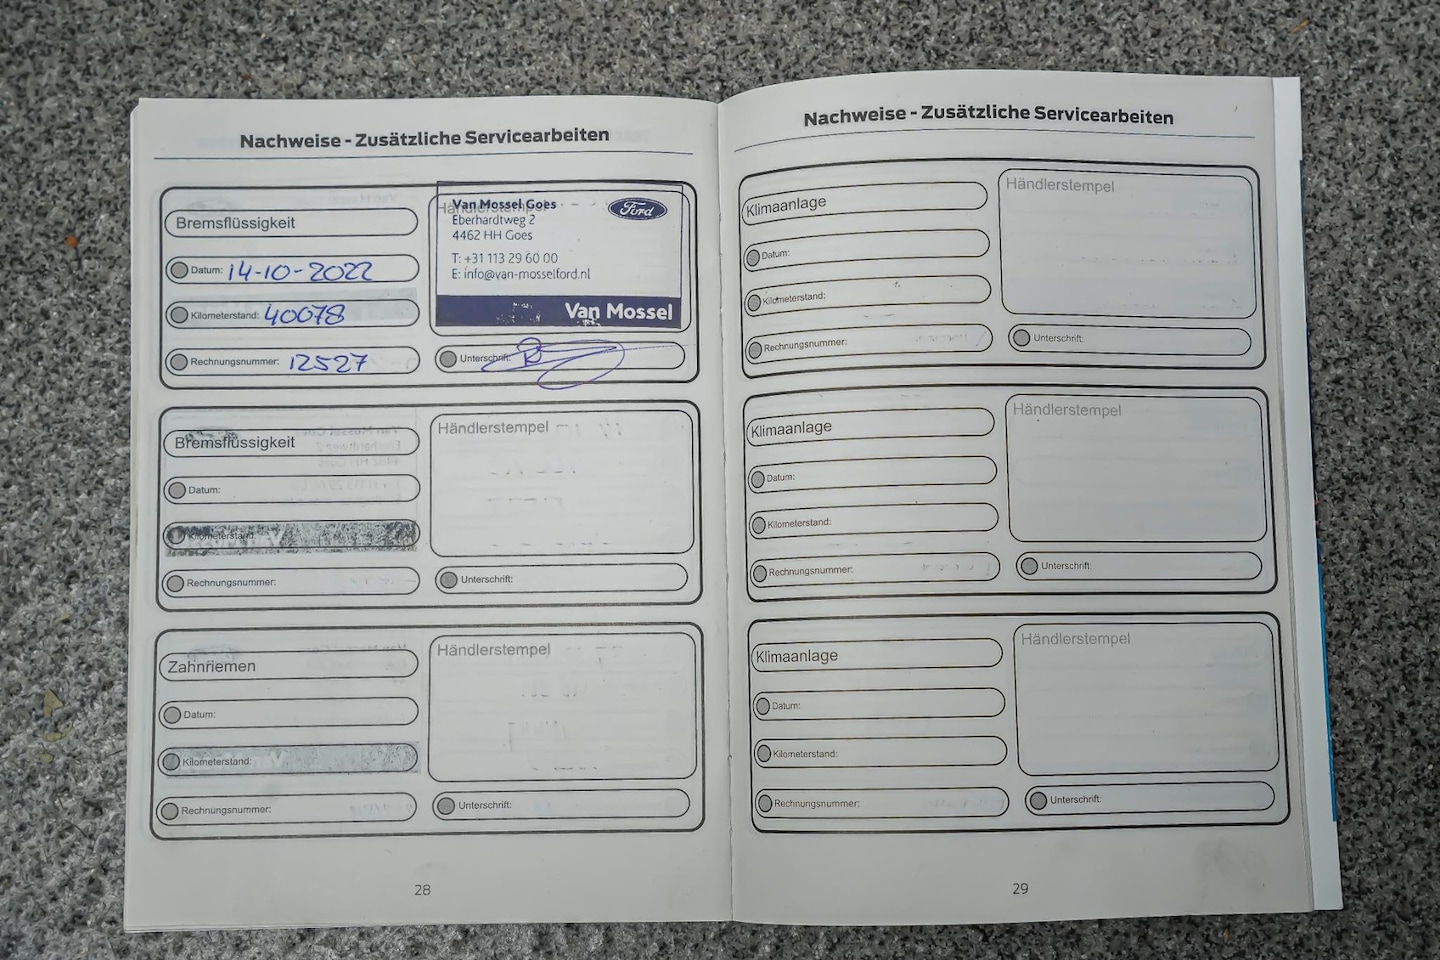 Nachweise - Zusätzliche Servicearbeiten
Bremsflüssigkeit
Datum: 14-10-2022
Kilometerstand: 40078
Rechnungsnummer: 12527
Händlerstempel
Van Mossel Goes
Eberhardtweg 2
4462 HH Goes
T: +31 113 29 60 00
E: info@van-mosselford.nl
Ford
Van Mossel
Unterschrift:
Bremsflüssigkeit
Datum:
Kilometerstand:
Rechnungsnummer:
Händlerstempel
Unterschrift:
Zahnriemen
Datum:
Kilometerstand:
Rechnungsnummer:
Händlerstempel
Unterschrift:
28
Nachweise - Zusätzliche Servicearbeiten
Klimaanlage
Datum:
Kilometerstand:
Rechnungsnummer:
Händlerstempel
Unterschrift:
Klimaanlage
Datum:
Kilometerstand:
Rechnungsnummer:
Händlerstempel
Unterschrift:
Klimaanlage
Datum:
Kilometerstand:
Rechnungsnummer:
Händlerstempel
Unterschrift:
29